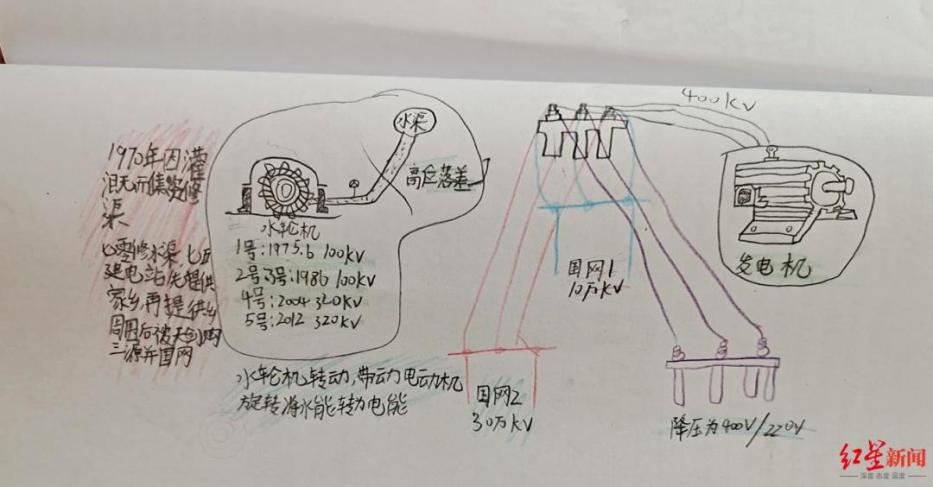 1970年因灌
溉无
修
渠
七零修水渠,七五
建电站先提供
家乡,再提供乡
周围后
三源并国网
水渠
高位落差
水轮机
1号:1975.6 100kv
2号3号:1986 100kv
4号:2004 320kv
5号:2012 320kv
水轮机转动,带动力电动机
旋转将水能转为电能
400kv
国网1
10万kv
国网2
30万kv
发电机
降压为400V/220V
红星新闻
深度 态度 温度